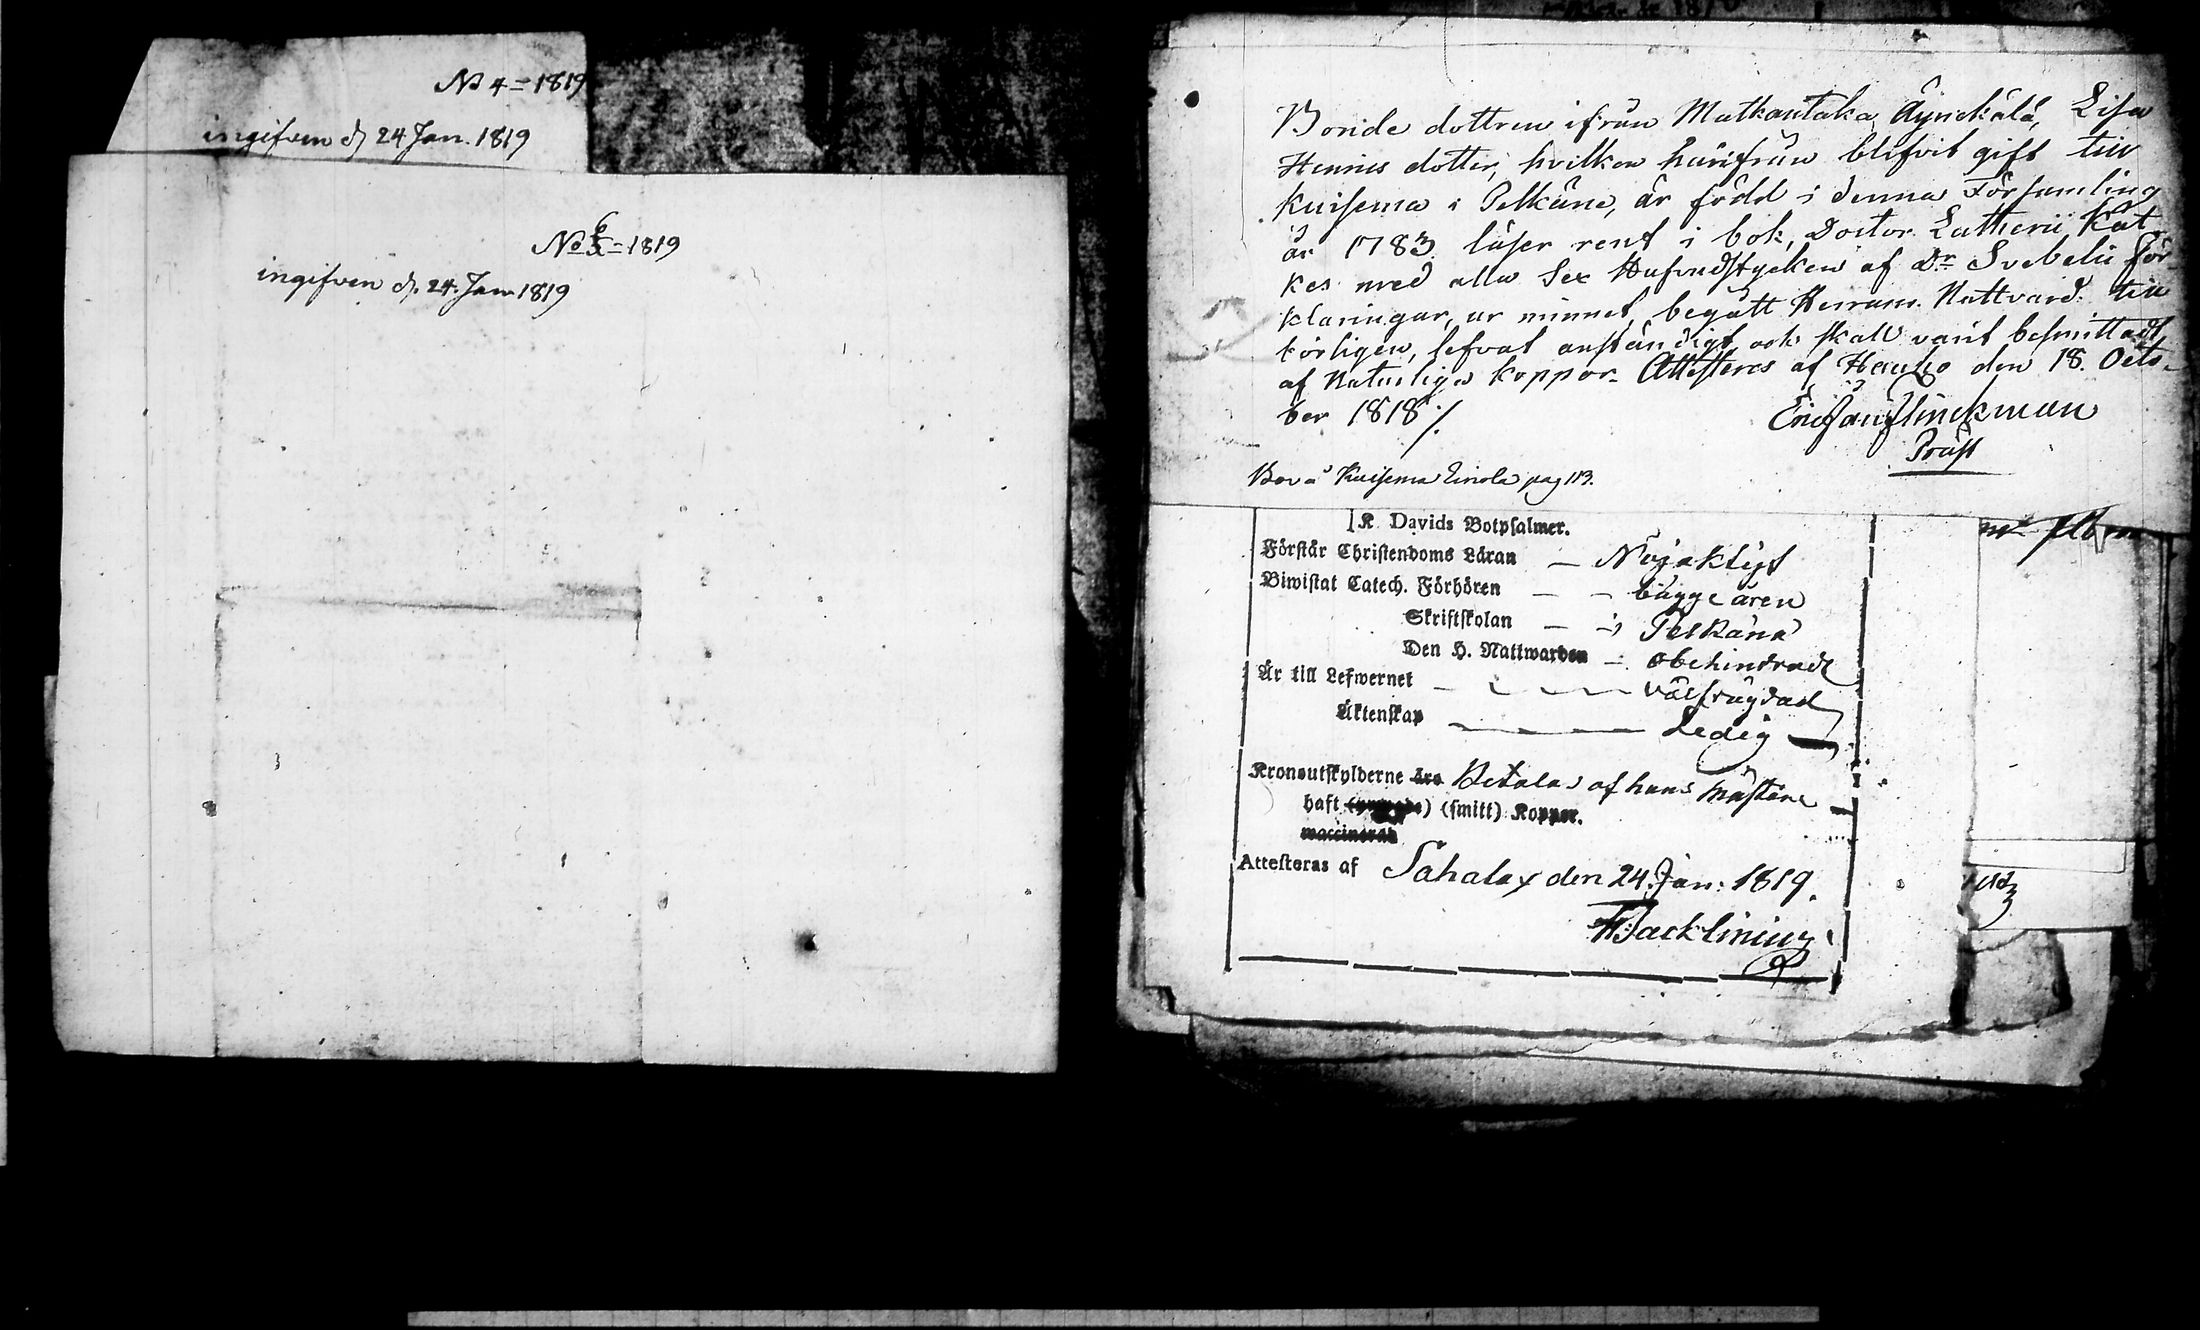 No 4 = 1819
ingifven d. 24 Jan. 1819
No 6 = 1819
ingifven d. 24. Jan 1819
Bonde dottren ifrån Matkantaka Äynekälä, Lisa
Henrics dotter, hvilken härifrån blifvit gift till
Kuisema i Pelkäne, är född i denna Församling
år 1783. läser rent i bok, Doctor Lutherii Kat-
kes med alla Sex Hufvudstycken af Dr Svebelii för-
klaringar, ur minnet, begått Herrans Nattvard till
börligen, lefvat anständigt och skall varit besmittadt
af Naturliga koppor. Attesteres af Hauho den 18. Octo-
ber 1818 ./.
Eric Jan Flinckman
Präst
Bor å Kuisema Einola pag 113.
K Davids Botpsalmer.
Förstår Christendoms Läran — Nöjaktigt
Biwistat Catech. Förhören — — bägge åren
Skriftskolan — i Pelkäne
Den H. Nattwarden — obehindrad
Är till Lefwernet — välfrägdad
Äktenskap — Ledig
Kronoutskylderne äro Betalas af hans Mästare
haft (smitt) Koppor.
waccinerad
Attesteras af Sahalax den 24. Jan: 1819.